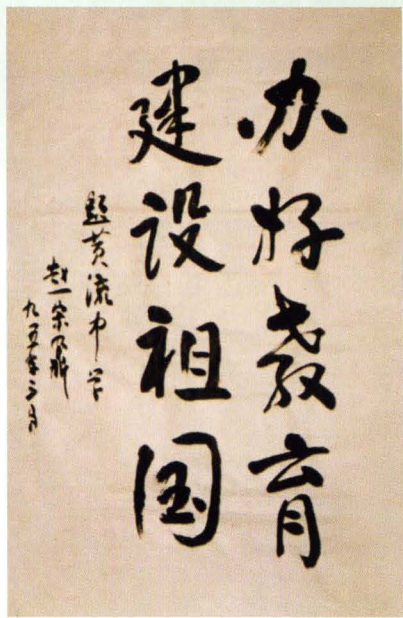 办好教育
建设祖国
题黄流中学
赵宗鼐
九五年三月